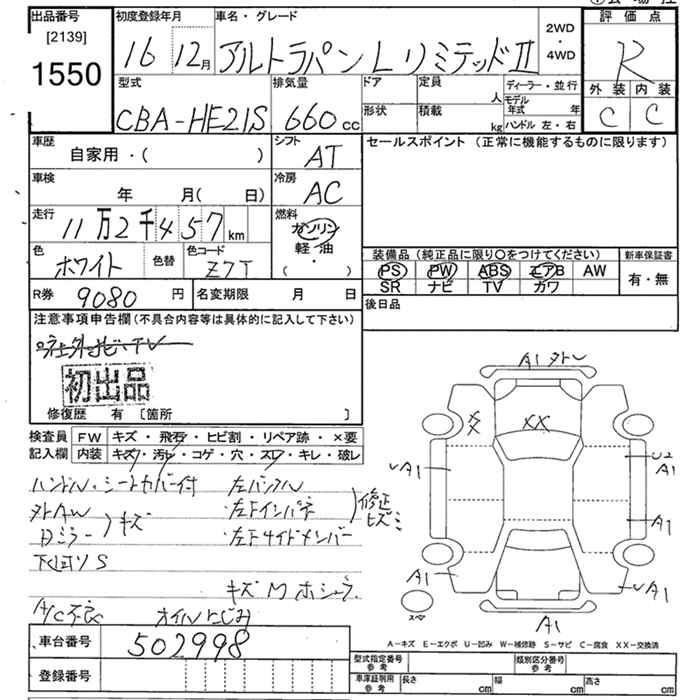 出品番号
[2139]
1550
初度登録年月
16 12月
車名・グレード
アルトラパン L リミテッドⅡ
2WD
・
4WD
評価点
R
外装 内装
C C
型式
CBA-HE21S
排気量
660 cc
ドア
定員
人
ディーラー・並行
形状
積載
kg
モデル年式 年
ハンドル 左・右
車歴
自家用・( )
シフト
AT
セールスポイント(正常に機能するものに限ります)
車検
年 月( 日)
冷房
AC
走行
11万2千457 km
燃料
ガソリン
軽・油
( ・ )
色
ホワイト
色替
色コード
Z7T
装備品(純正品に限り○をつけてください)
PS PW ABS エアB AW
SR ナビ TV カワ
新車保証書
有・無
R券 9080 円
名変期限 月 日
後日品
注意事項申告欄(不具合内容等は具体的に記入して下さい)
初出品
修復歴 有 [箇所 ]
検査員 FW キズ・飛石・ヒビ割・リペア跡・×要
記入欄 内装 キズ・汚レ・コゲ・穴・スレ・キレ・破レ
ハンドル・シートカバー付
外AW
ドミラー
キズ
下回りS
左バックパネル
・左Fインパネ
・左Fサイドメンバー
修正
ヒズミ
キズM ホシュウ
A/C不良 オイルにじみ
A1 外し
XX
XX
U2
A1
A1
A1
A1
A1
A1
スペア
A-キズ E-エクボ U-凹み W-補修跡 S-サビ C-腐食 XX-交換済
車台番号 502998
登録番号
型式指定番号
参考
類別区分番号
参考
車庫証明用
参考
長さ cm 幅 cm 高さ cm